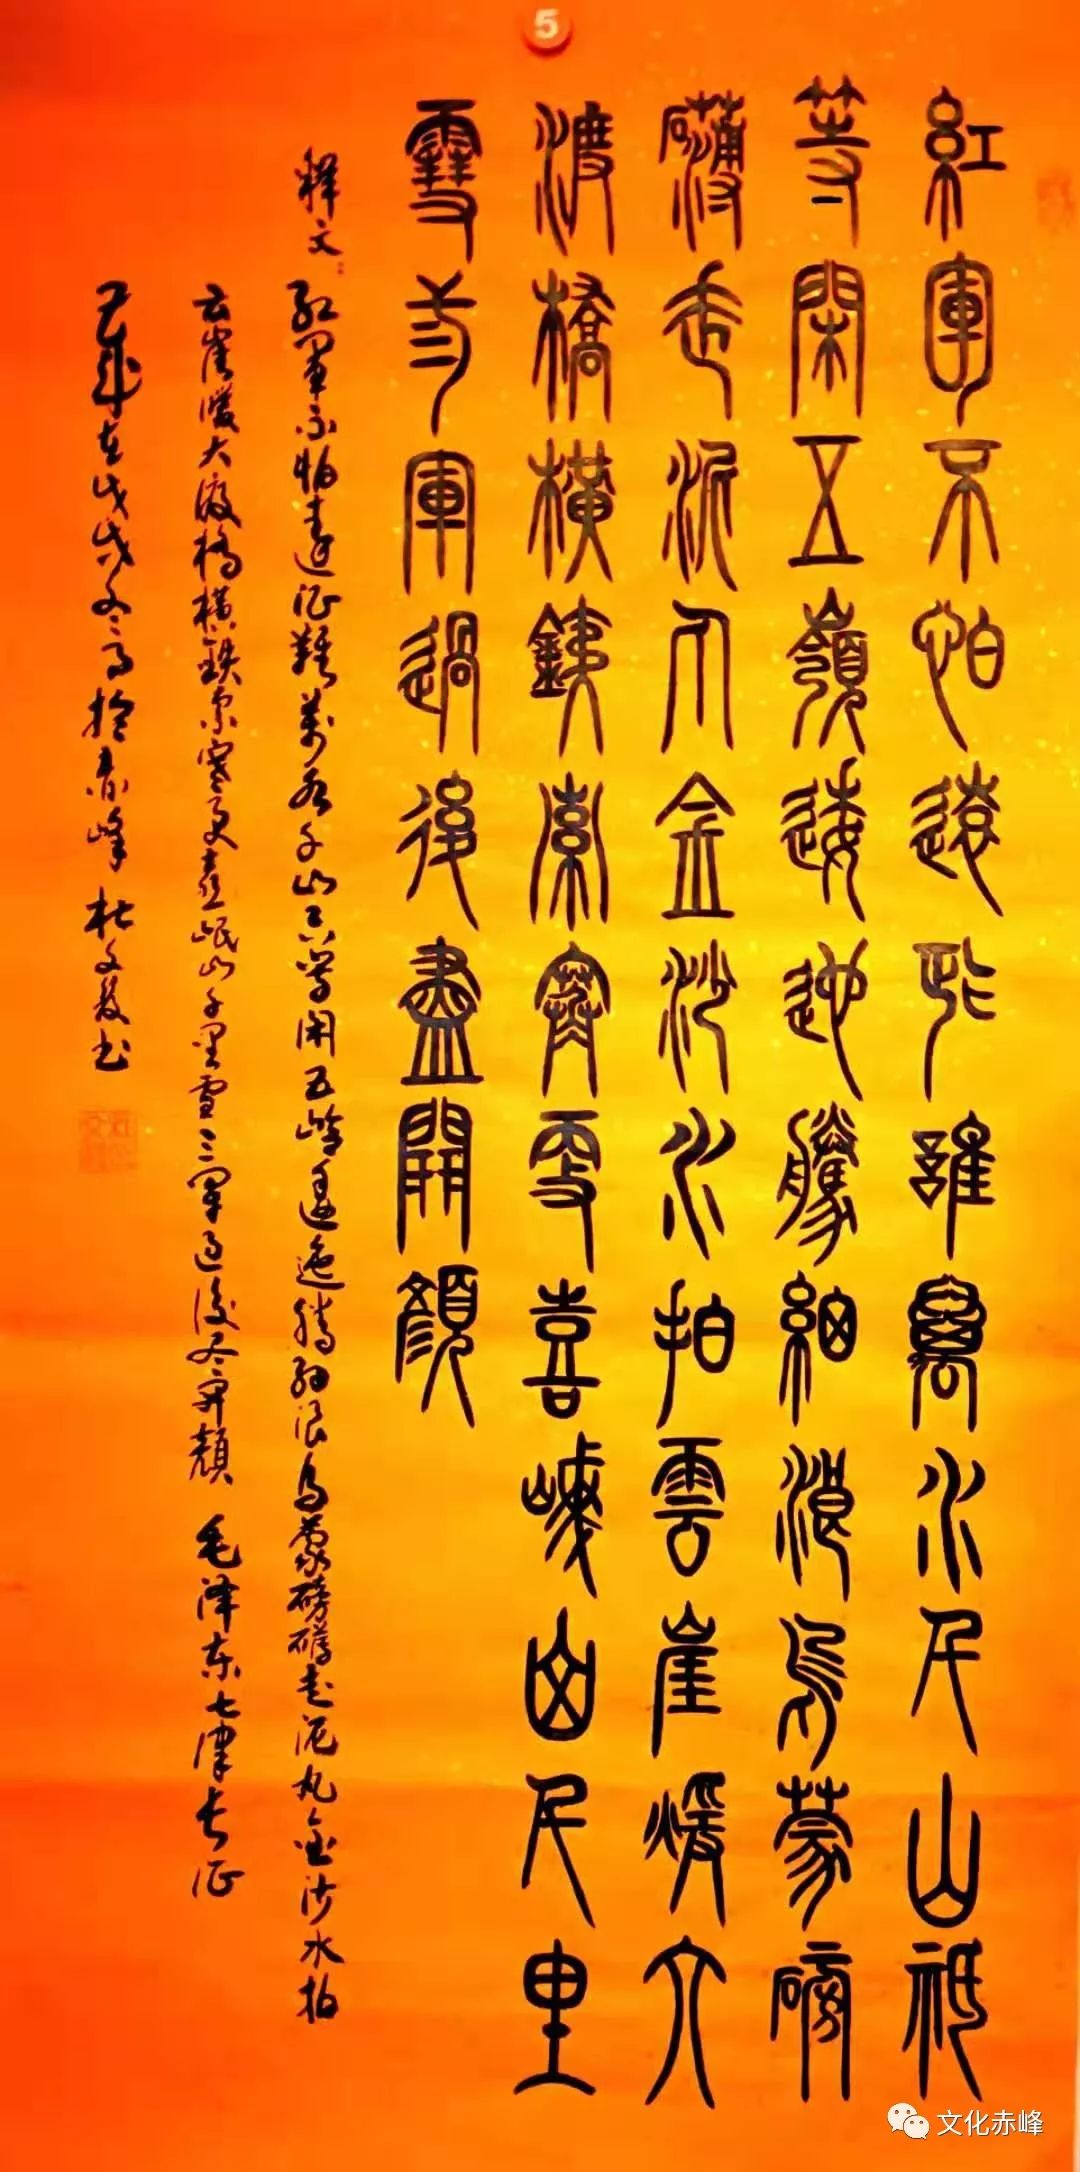 5
紅軍不怕遠征難萬水千山祇
等閑五嶺逶迤騰細浪烏蒙磅
礴走泥丸金沙水拍雲崖暖大
渡橋橫鐵索寒更喜岷山千里
雪三軍過後盡開顏
释文：红军不怕远征难萬水千山只等闲五岭逶迤腾细浪乌蒙磅礴走泥丸金沙水拍
云崖暖大渡桥横铁索寒更喜岷山千里雪三军过后尽开颜 毛泽东七律长征
岁在戊戌冬月於赤峰 杜文书
文化赤峰